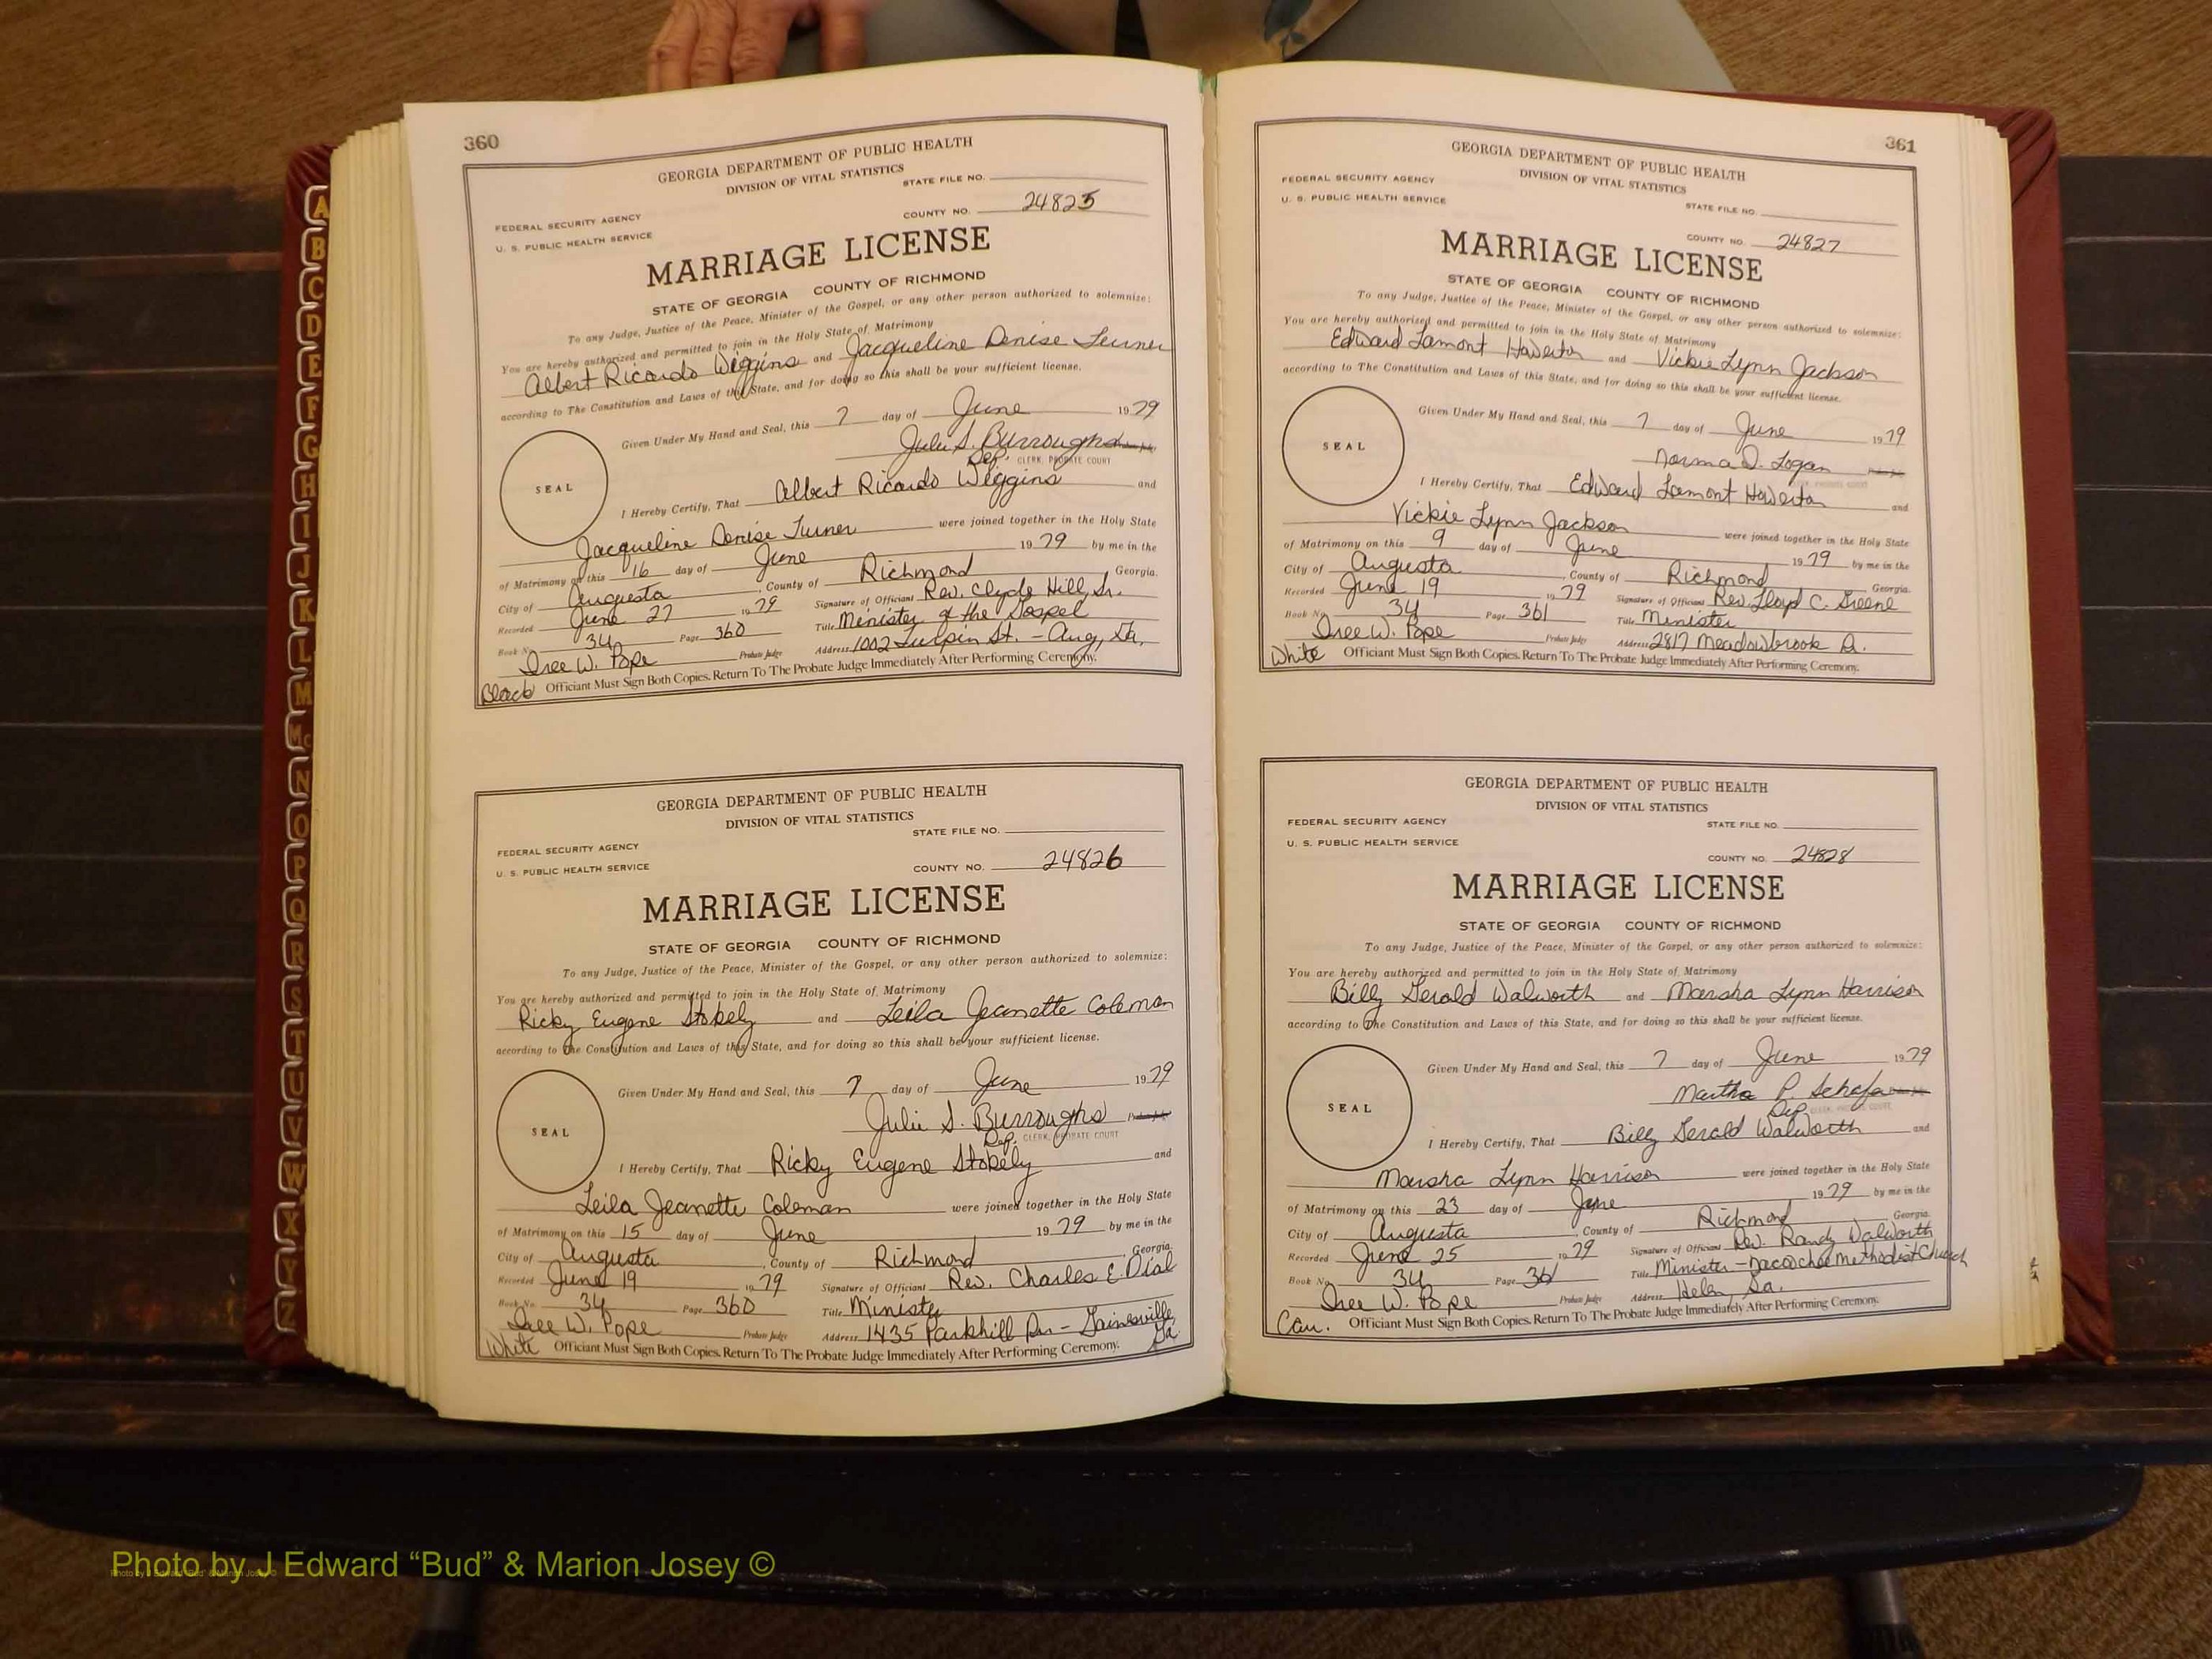 360
GEORGIA DEPARTMENT OF PUBLIC HEALTH
DIVISION OF VITAL STATISTICS
STATE FILE NO.
FEDERAL SECURITY AGENCY
COUNTY NO. 24825
U. S. PUBLIC HEALTH SERVICE
MARRIAGE LICENSE
STATE OF GEORGIA COUNTY OF RICHMOND
To any Judge, Justice of the Peace, Minister of the Gospel, or any other person authorized to solemnize:
You are hereby authorized and permitted to join in the Holy State of Matrimony
Albert Ricardo Wiggins and Jacqueline Denise Turner
according to The Constitution and Laws of this State, and for doing so this shall be your sufficient license.
Given Under My Hand and Seal, this 7 day of June 1979
Julie S. Burroughs
Dep. CLERK, PROBATE COURT
SEAL
I Hereby Certify, That Albert Ricardo Wiggins and
Jacqueline Denise Turner were joined together in the Holy State
of Matrimony on this 16 day of June 1979 by me in the
City of Augusta, County of Richmond Georgia.
Recorded June 27 1979 Signature of Officiant Rev. Clyde Hill, Sr.
Book No. 34 Page 360 Title Minister of the Gospel
Iree W. Pope Probate Judge Address 1002 Turpin St. - Aug, Ga.
Black Officiant Must Sign Both Copies. Return To The Probate Judge Immediately After Performing Ceremony.
GEORGIA DEPARTMENT OF PUBLIC HEALTH
DIVISION OF VITAL STATISTICS
STATE FILE NO.
FEDERAL SECURITY AGENCY
U. S. PUBLIC HEALTH SERVICE COUNTY NO. 24826
MARRIAGE LICENSE
STATE OF GEORGIA COUNTY OF RICHMOND
To any Judge, Justice of the Peace, Minister of the Gospel, or any other person authorized to solemnize:
You are hereby authorized and permitted to join in the Holy State of Matrimony
Ricky Eugene Stokely and Leila Jeanette Coleman
according to The Constitution and Laws of this State, and for doing so this shall be your sufficient license.
Given Under My Hand and Seal, this 7 day of June 1979
Julie S. Burroughs
Dep. CLERK, PROBATE COURT
SEAL
I Hereby Certify, That Ricky Eugene Stokely and
Leila Jeanette Coleman were joined together in the Holy State
of Matrimony on this 15 day of June 1979 by me in the
City of Augusta, County of Richmond, Georgia.
Recorded June 19 1979 Signature of Officiant Rev. Charles E. Dial
Book No. 34 Page 360 Title Minister
Iree W. Pope Probate Judge Address 1435 Parkhill Dr - Gainesville, Ga.
White Officiant Must Sign Both Copies. Return To The Probate Judge Immediately After Performing Ceremony.
361
GEORGIA DEPARTMENT OF PUBLIC HEALTH
DIVISION OF VITAL STATISTICS
FEDERAL SECURITY AGENCY
U. S. PUBLIC HEALTH SERVICE
STATE FILE NO.
COUNTY NO. 24827
MARRIAGE LICENSE
STATE OF GEORGIA COUNTY OF RICHMOND
To any Judge, Justice of the Peace, Minister of the Gospel, or any other person authorized to solemnize:
You are hereby authorized and permitted to join in the Holy State of Matrimony
Edward Lamont Howerton and Vickie Lynn Jackson
according to The Constitution and Laws of this State, and for doing so this shall be your sufficient license.
Given Under My Hand and Seal, this 7 day of June 1979
Norma D. Logan
SEAL
I Hereby Certify, That Edward Lamont Howerton and
Vickie Lynn Jackson were joined together in the Holy State
of Matrimony on this 9 day of June 1979 by me in the
City of Augusta, County of Richmond Georgia.
Recorded June 19 1979 Signature of Officiant Rev. Lloyd C. Greene
Book No. 34 Page 361 Title Minister
Iree W. Pope Probate Judge Address 2817 Meadowbrook Dr.
White Officiant Must Sign Both Copies. Return To The Probate Judge Immediately After Performing Ceremony.
GEORGIA DEPARTMENT OF PUBLIC HEALTH
DIVISION OF VITAL STATISTICS
FEDERAL SECURITY AGENCY STATE FILE NO.
U. S. PUBLIC HEALTH SERVICE
COUNTY NO. 24828
MARRIAGE LICENSE
STATE OF GEORGIA COUNTY OF RICHMOND
To any Judge, Justice of the Peace, Minister of the Gospel, or any other person authorized to solemnize:
You are hereby authorized and permitted to join in the Holy State of Matrimony
Billy Gerald Walworth and Marsha Lynn Harrison
according to The Constitution and Laws of this State, and for doing so this shall be your sufficient license.
Given Under My Hand and Seal, this 7 day of June 1979
Martha P. Schafer
Dep. CLERK, PROBATE COURT
SEAL
I Hereby Certify, That Billy Gerald Walworth and
Marsha Lynn Harrison were joined together in the Holy State
of Matrimony on this 23 day of June 1979 by me in the
City of Augusta, County of Richmond Georgia.
Recorded June 25 1979 Signature of Officiant Rev. Randy Walworth
Book No. 34 Page 361 Title Minister - Nacoochee Methodist Church
Iree W. Pope Probate Judge Address Helen, Ga.
Cau. Officiant Must Sign Both Copies. Return To The Probate Judge Immediately After Performing Ceremony.
A
B
C
D
E
F
G
H
I
J
K
L
M
Mc
N
O
P
Q
R
S
T
U
V
W
X
Y
Z
Photo by J Edward “Bud” & Marion Josey ©
Photo by J Edward "Bud" & Marion Josey ©